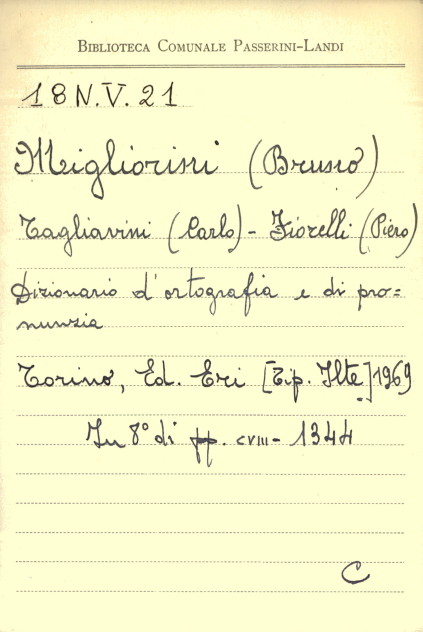 BIBLIOTECA COMUNALE PASSERINI-LANDI
18 N.V. 21
Migliorini (Bruno)
Tagliavini (Carlo) - Fiorelli (Piero)
Dizionario d'ortografia e di pro=
nunzia
Torino, Ed. Eri [Tip. Ilte] 1969
In 8° di pp. CVIII - 1344
C